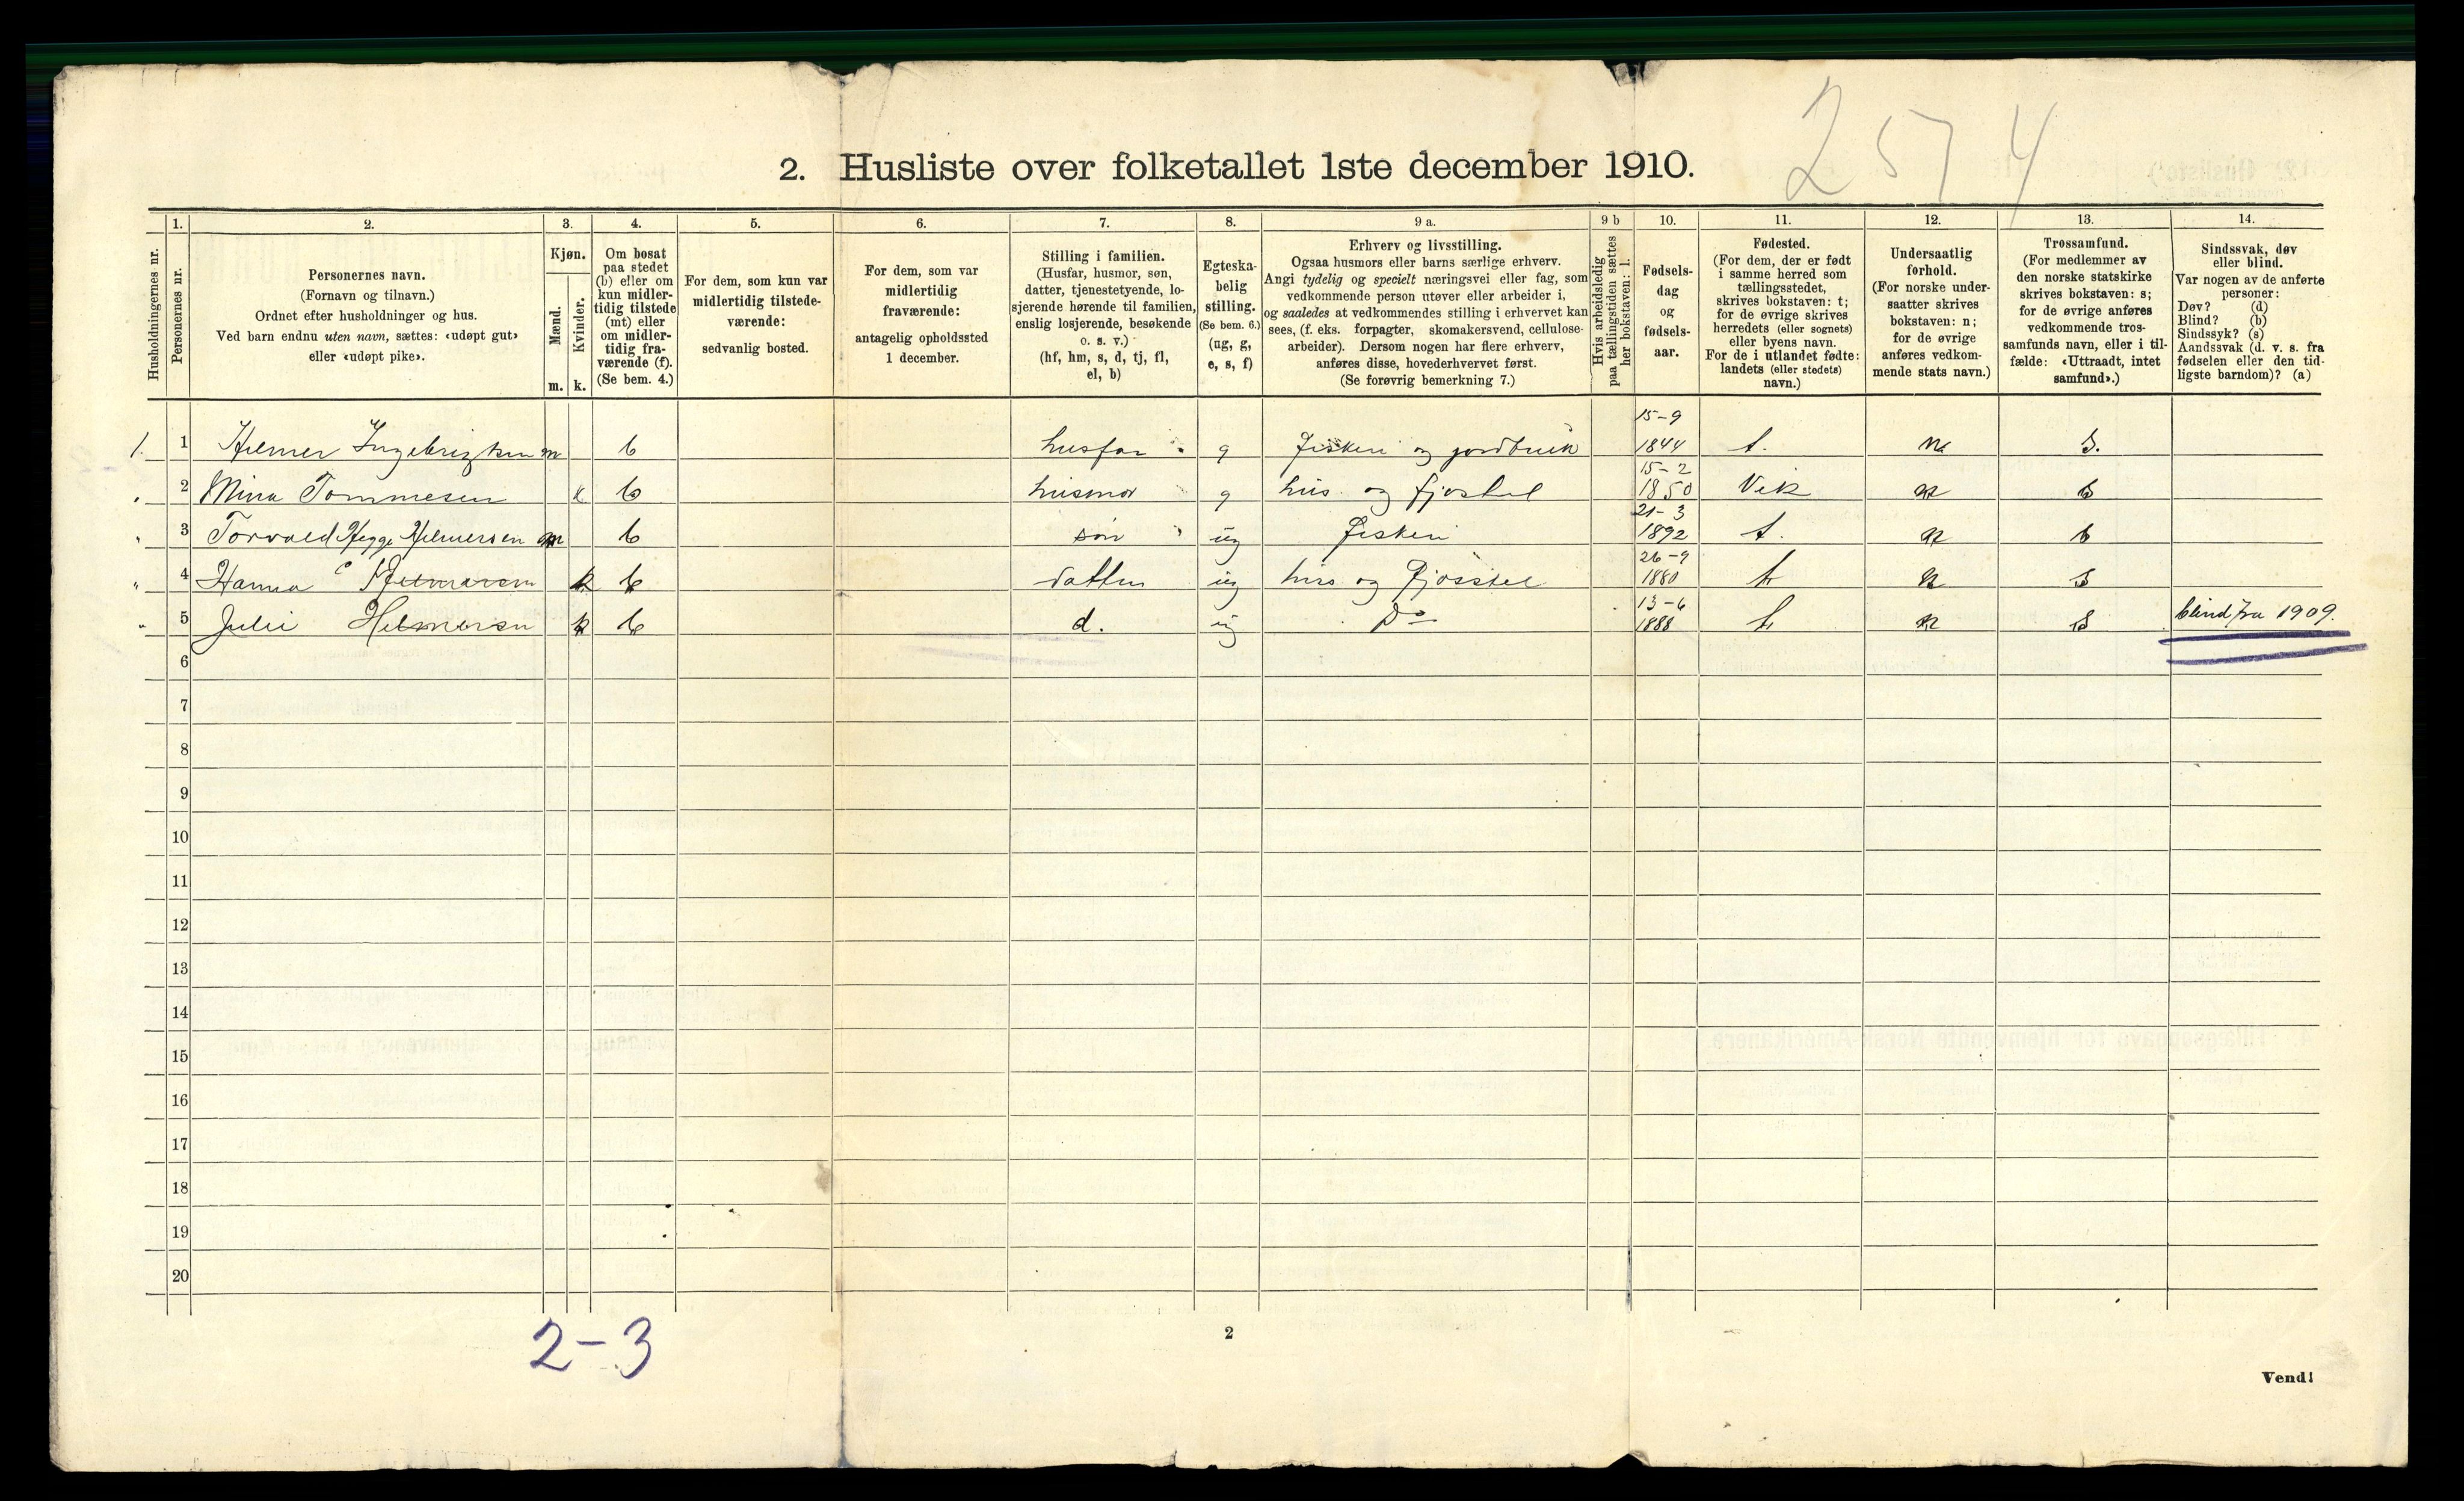 2574
2. Husliste over folketallet 1ste december 1910.
Husholdningernes nr.
1.
Personernes nr.
2.
Personernes navn.
(Fornavn og tilnavn.)
Ordnet efter husholdninger og hus.
Ved barn endnu uten navn, sættes: «udøpt gut»
eller «udøpt pike».
3.
Kjøn.
Mænd.
Kvinder.
m. k.
4.
Om bosat
paa stedet
(b) eller om
kun midler-
tidig tilstede
(mt) eller
om midler-
tidig fra-
værende (f).
(Se bem. 4.)
5.
For dem, som kun var
midlertidig tilstede-
værende:
sedvanlig bosted.
6.
For dem, som var
midlertidig
fraværende:
antagelig opholdssted
1 december.
7.
Stilling i familien.
(Husfar, husmor, søn,
datter, tjenestetyende, lo-
sjerende hørende til familien,
enslig losjerende, besøkende
o. s. v.)
(hf, hm, s, d, tj, fl,
el, b)
8.
Egteska-
belig
stilling.
(Se bem. 6.)
(ug, g,
e, s, f)
9 a.
Erhverv og livsstilling.
Ogsaa husmors eller barns særlige erhverv.
Angi tydelig og specielt næringsvei eller fag, som
vedkommende person utøver eller arbeider i,
og saaledes at vedkommendes stilling i erhvervet kan
sees, (f. eks. forpagter, skomakersvend, cellulose-
arbeider). Dersom nogen har flere erhverv,
anføres disse, hovederhvervet først.
(Se forøvrig bemerkning 7.)
9 b
Hvis arbeidsledig
paa tællingstiden sættes
her bokstaven: l.
10.
Fødsels-
dag
og
fødsels-
aar.
11.
Fødested.
(For dem, der er født
i samme herred som
tællingsstedet,
skrives bokstaven: t;
for de øvrige skrives
herredets (eller sognets)
eller byens navn.
For de i utlandet fødte:
landets (eller stedets)
navn.)
12.
Undersaatlig
forhold.
(For norske under-
saatter skrives
bokstaven: n;
for de øvrige
anføres vedkom-
mende stats navn.)
13.
Trossamfund.
(For medlemmer av
den norske statskirke
skrives bokstaven: s;
for de øvrige anføres
vedkommende tros-
samfunds navn, eller i til-
fælde: «Uttraadt, intet
samfund».)
14.
Sindssvak, døv
eller blind.
Var nogen av de anførte
personer:
Døv? (d)
Blind? (b)
Sindssyk? (s)
Aandssvak (d. v. s. fra
fødselen eller den tid-
ligste barndom)? (a)
1. 1 Helmer Ingebrigtsen m b husfar g Fiskeri og jordbruk 15-9 1844 t. n s.
" 2 Mina Tommesen k b husmor g hus og fjøstel 15-2 1850 Vik n s
" 3 Torvald Hegge Helmersen m b søn ug Fiskeri 21-3 1892 t. n s
" 4 Hanna Helmersen k b datter ug hus og Fjøsstel 26-9 1880 t n s
" 5 Julie Helmersen k b d. ug Do 13-6 1888 t n s blind fra 1909.
6
7
8
9
10
11
12
13
14
15
16
17
18
19
20
2-3
2
Vend!